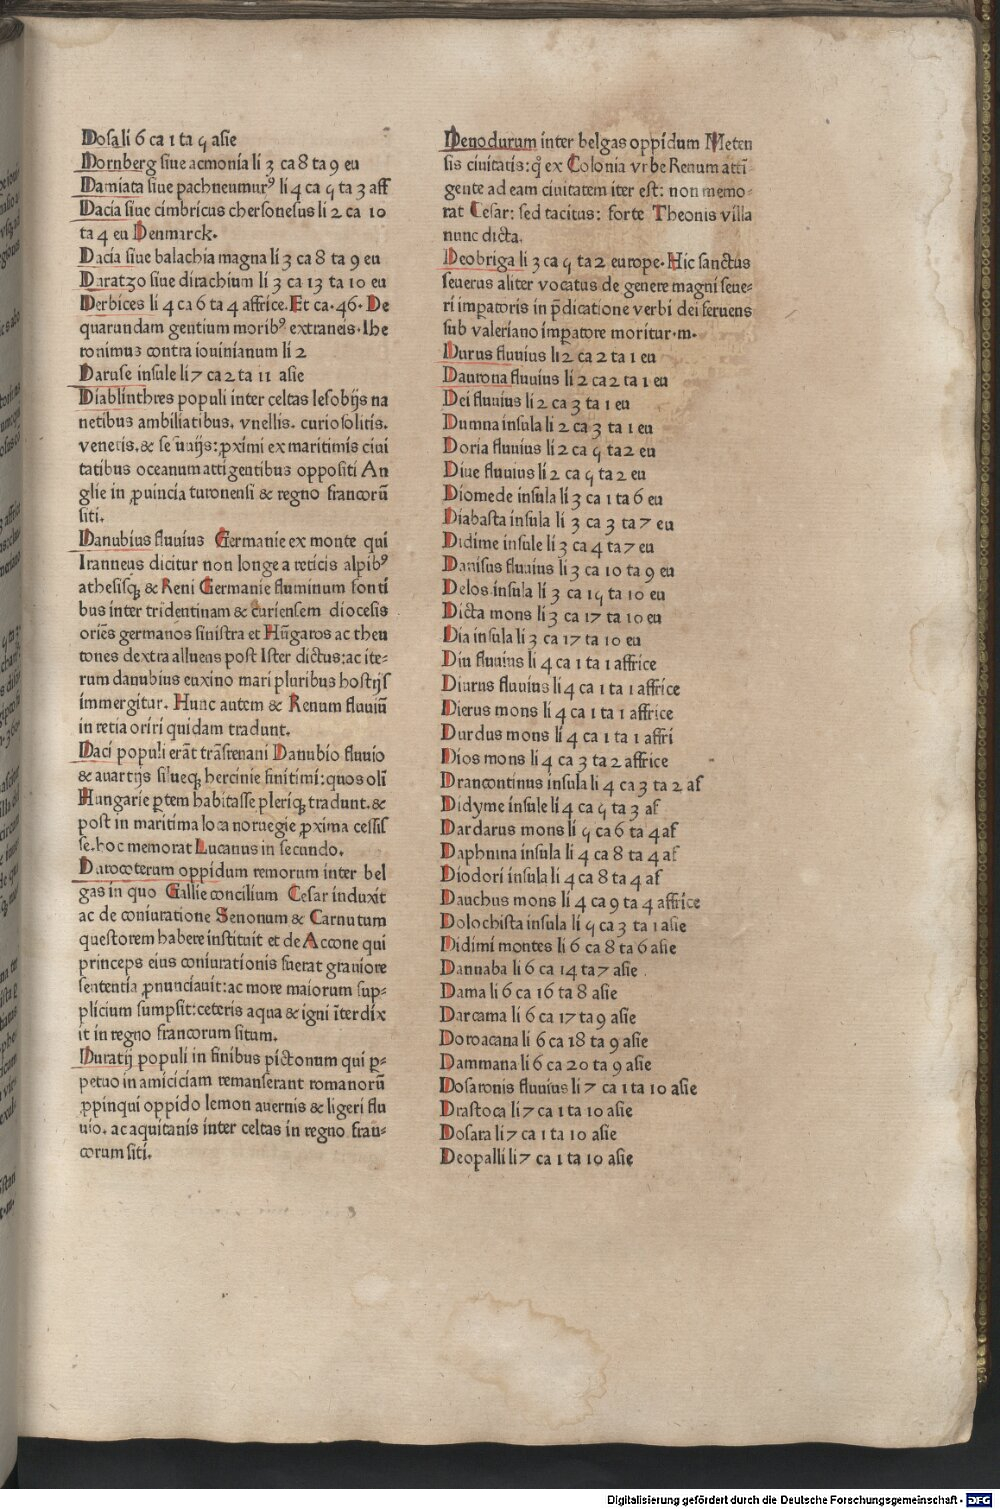 Dosa li 6 ca 1 ta 9 asie
Dornberg siue acmonia li 3 ca 8 ta 9 eu
Damiata siue pachneumurꝰ li 4 ca 9 ta 3 aff
Dacia siue cimbricus chersonesus li 2 ca 10
ta 4 eu Denmarck.
Dacia siue balachia magna li 3 ca 8 ta 9 eu
Daratzo siue dirachium li 3 ca 13 ta 10 eu
Derbices li 4 ca 6 ta 4 affrice. Et ca. 46. De
quarundam gentium moribꝰ extraneis. Ihe
ronimus contra iouinianum li 2
Daruse insule li 7 ca 2 ta 11 asie
Diablinthres populi inter celtas lesobijs na
netibus ambiliatibus. vnellis. curiosolitis.
venetis. & sesuuijs: ꝓximi ex maritimis ciui
tatibus oceanum attigentibus oppositi An
glie in ꝓuincia turonensi & regno francorū
siti.
Danubius fluuius Germanie ex monte qui
Iranneus dicitur non longe a reticis alpibꝰ
athesisqꝫ & Reni Germanie fluminum fonti
bus inter tridentinam & curiensem diocesis
oriēs germanos sinistra et Hūgaros ac theu
tones dextra alluens post Ister dictus: ac ite-
rum danubius euxino mari pluribus hostijs
immergitur. Hunc autem & Renum fluuiū
in retia oriri quidam tradunt.
Daci populi erāt trāsrenani Danubio fluuio
& auartijs silueqꝫ hercinie finitimi: quos oli
Hungarie ꝑtem habitasse pleriqꝫ tradunt. &
post in maritima loca noruegie ꝓxima cessis
se. hoc memorat Lucanus in secundo.
Darocoterum oppidum remorum inter bel
gas in quo Gallie concilium Cesar induxit
ac de coniuratione Senonum & Carnutum
questorem habere instituit et de Accone qui
princeps eius coniurationis fuerat grauiore
sententia ꝓnunciauit: ac more maiorum sup-
plicium sumpsit: ceteris aqua & igni īterdix
it in regno francorum situm.
Duratij populi in finibus pictonum qui ꝑ-
petuo in amiciciam remanserant romanorū
ꝓpinqui oppido lemon auernis & ligeri flu
uio. ac aquitanis inter celtas in regno fran-
corum siti.
Denodurum inter belgas oppidum Meten
sis ciuitatis: q̄ ex Colonia vrbe Renum atti-
gente ad eam ciuitatem iter est: non memo-
rat Cesar: sed tacitus: forte Theonis villa
nunc dicta.
Deobriga li 3 ca 9 ta 2 europe. Hic sanctus
seuerus aliter vocatus de genere magni seue-
ri imꝑatoris in p̄dicatione verbi dei feruens
sub valeriano imꝑatore moritur. m.
Durus fluuius li 2 ca 2 ta 1 eu
Daurona fluuius li 2 ca 2 ta 1 eu
Dei fluuius li 2 ca 3 ta 1 eu
Dumna insula li 2 ca 3 ta 1 eu
Doria fluuius li 2 ca 9 ta 2 eu
Diue fluuius li 2 ca 9 ta 2 eu
Diomede insula li 3 ca 1 ta 6 eu
Diabasta insula li 3 ca 3 ta 7 eu
Didime insule li 3 ca 4 ta 7 eu
Danisus fluuius li 3 ca 10 ta 9 eu
Delos insula li 3 ca 19 ta 10 eu
Dicta mons li 3 ca 17 ta 10 eu
Dia insula li 3 ca 17 ta 10 eu
Diu fluuius li 4 ca 1 ta 1 affrice
Diurus fluuius li 4 ca 1 ta 1 affrice
Dierus mons li 4 ca 1 ta 1 affrice
Durdus mons li 4 ca 1 ta 1 affri
Dios mons li 4 ca 3 ta 2 affrice
Drancontinus insula li 4 ca 3 ta 2 af
Didyme insule li 4 ca 9 ta 3 af
Dardarus mons li 9 ca 6 ta 4 af
Daphnina insula li 4 ca 8 ta 4 af
Diodori insula li 4 ca 8 ta 4 af
Dauchus mons li 4 ca 9 ta 4 affrice
Dolochista insula li 9 ca 3 ta 1 asie
Didimi montes li 6 ca 8 ta 6 asie
Dannaba li 6 ca 14 ta 7 asie
Dama li 6 ca 16 ta 8 asie
Darcama li 6 ca 17 ta 9 asie
Doroacana li 6 ca 18 ta 9 asie
Dammana li 6 ca 20 ta 9 asie
Dosaronis fluuius li 7 ca 1 ta 10 asie
Drastoca li 7 ca 1 ta 10 asie
Dosara li 7 ca 1 ta 10 asie
Deopalli li 7 ca 1 ta 10 asie
Digitalisierung gefördert durch die Deutsche Forschungsgemeinschaft - DFG